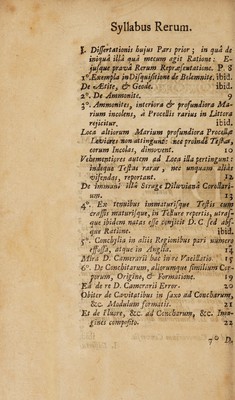 Syllabus Rerum.
I. Dissertationis hujus Pars prior; in quâ de
iniquâ illâ quâ mecum agit Ratione: E-
jusque pravâ Rerum Repræsentatione. P. 8
1°. Exempla in Disquisitione de Belemnite. ibid.
De Ætite, & Geode. ibid.
2°. De Ammonite. 9
3°. Ammonites, interiora & profundiora Ma-
rium incolens, à Procellis rarius in Littora
rejicitur, ibid.
Loca altiorum Marium profundiora Procellæ
Leviores non attingunt: nec proinde Testas,
eorum Incolas, dimovent. 10
Vehementiores autem ad Loca illa pertingunt:
indeque Testas raras, nec unquam aliàs
visendas, reportant. 12
De immani illâ Strage Diluvianâ Corollari-
um. 13
4°. Ex tenuibus immaturisque Testis cum
crassis maturisque, in Tellure repertis, utræ-
que ibidem natas esse conjicit D. C. sed abs-
que Ratione. ibid.
5°. Conchylia in aliis Regionibus pari numero
effossa, atque in Angliâ. 14
Mira D. Camerarii hac in re Vacillatio. 15
6°. De Conchitarum, aliorumque similium Cor-
porum, Origine, & Formatione. 19
Ea de re D. Camerarii Error. 20
Obiter de Cavitatibus in saxo ad Concharum,
&c. Modulum formatis. 21
Et de Fluore, &c. ad Concharum, &c. Ima-
gines composito. 22
7° D.